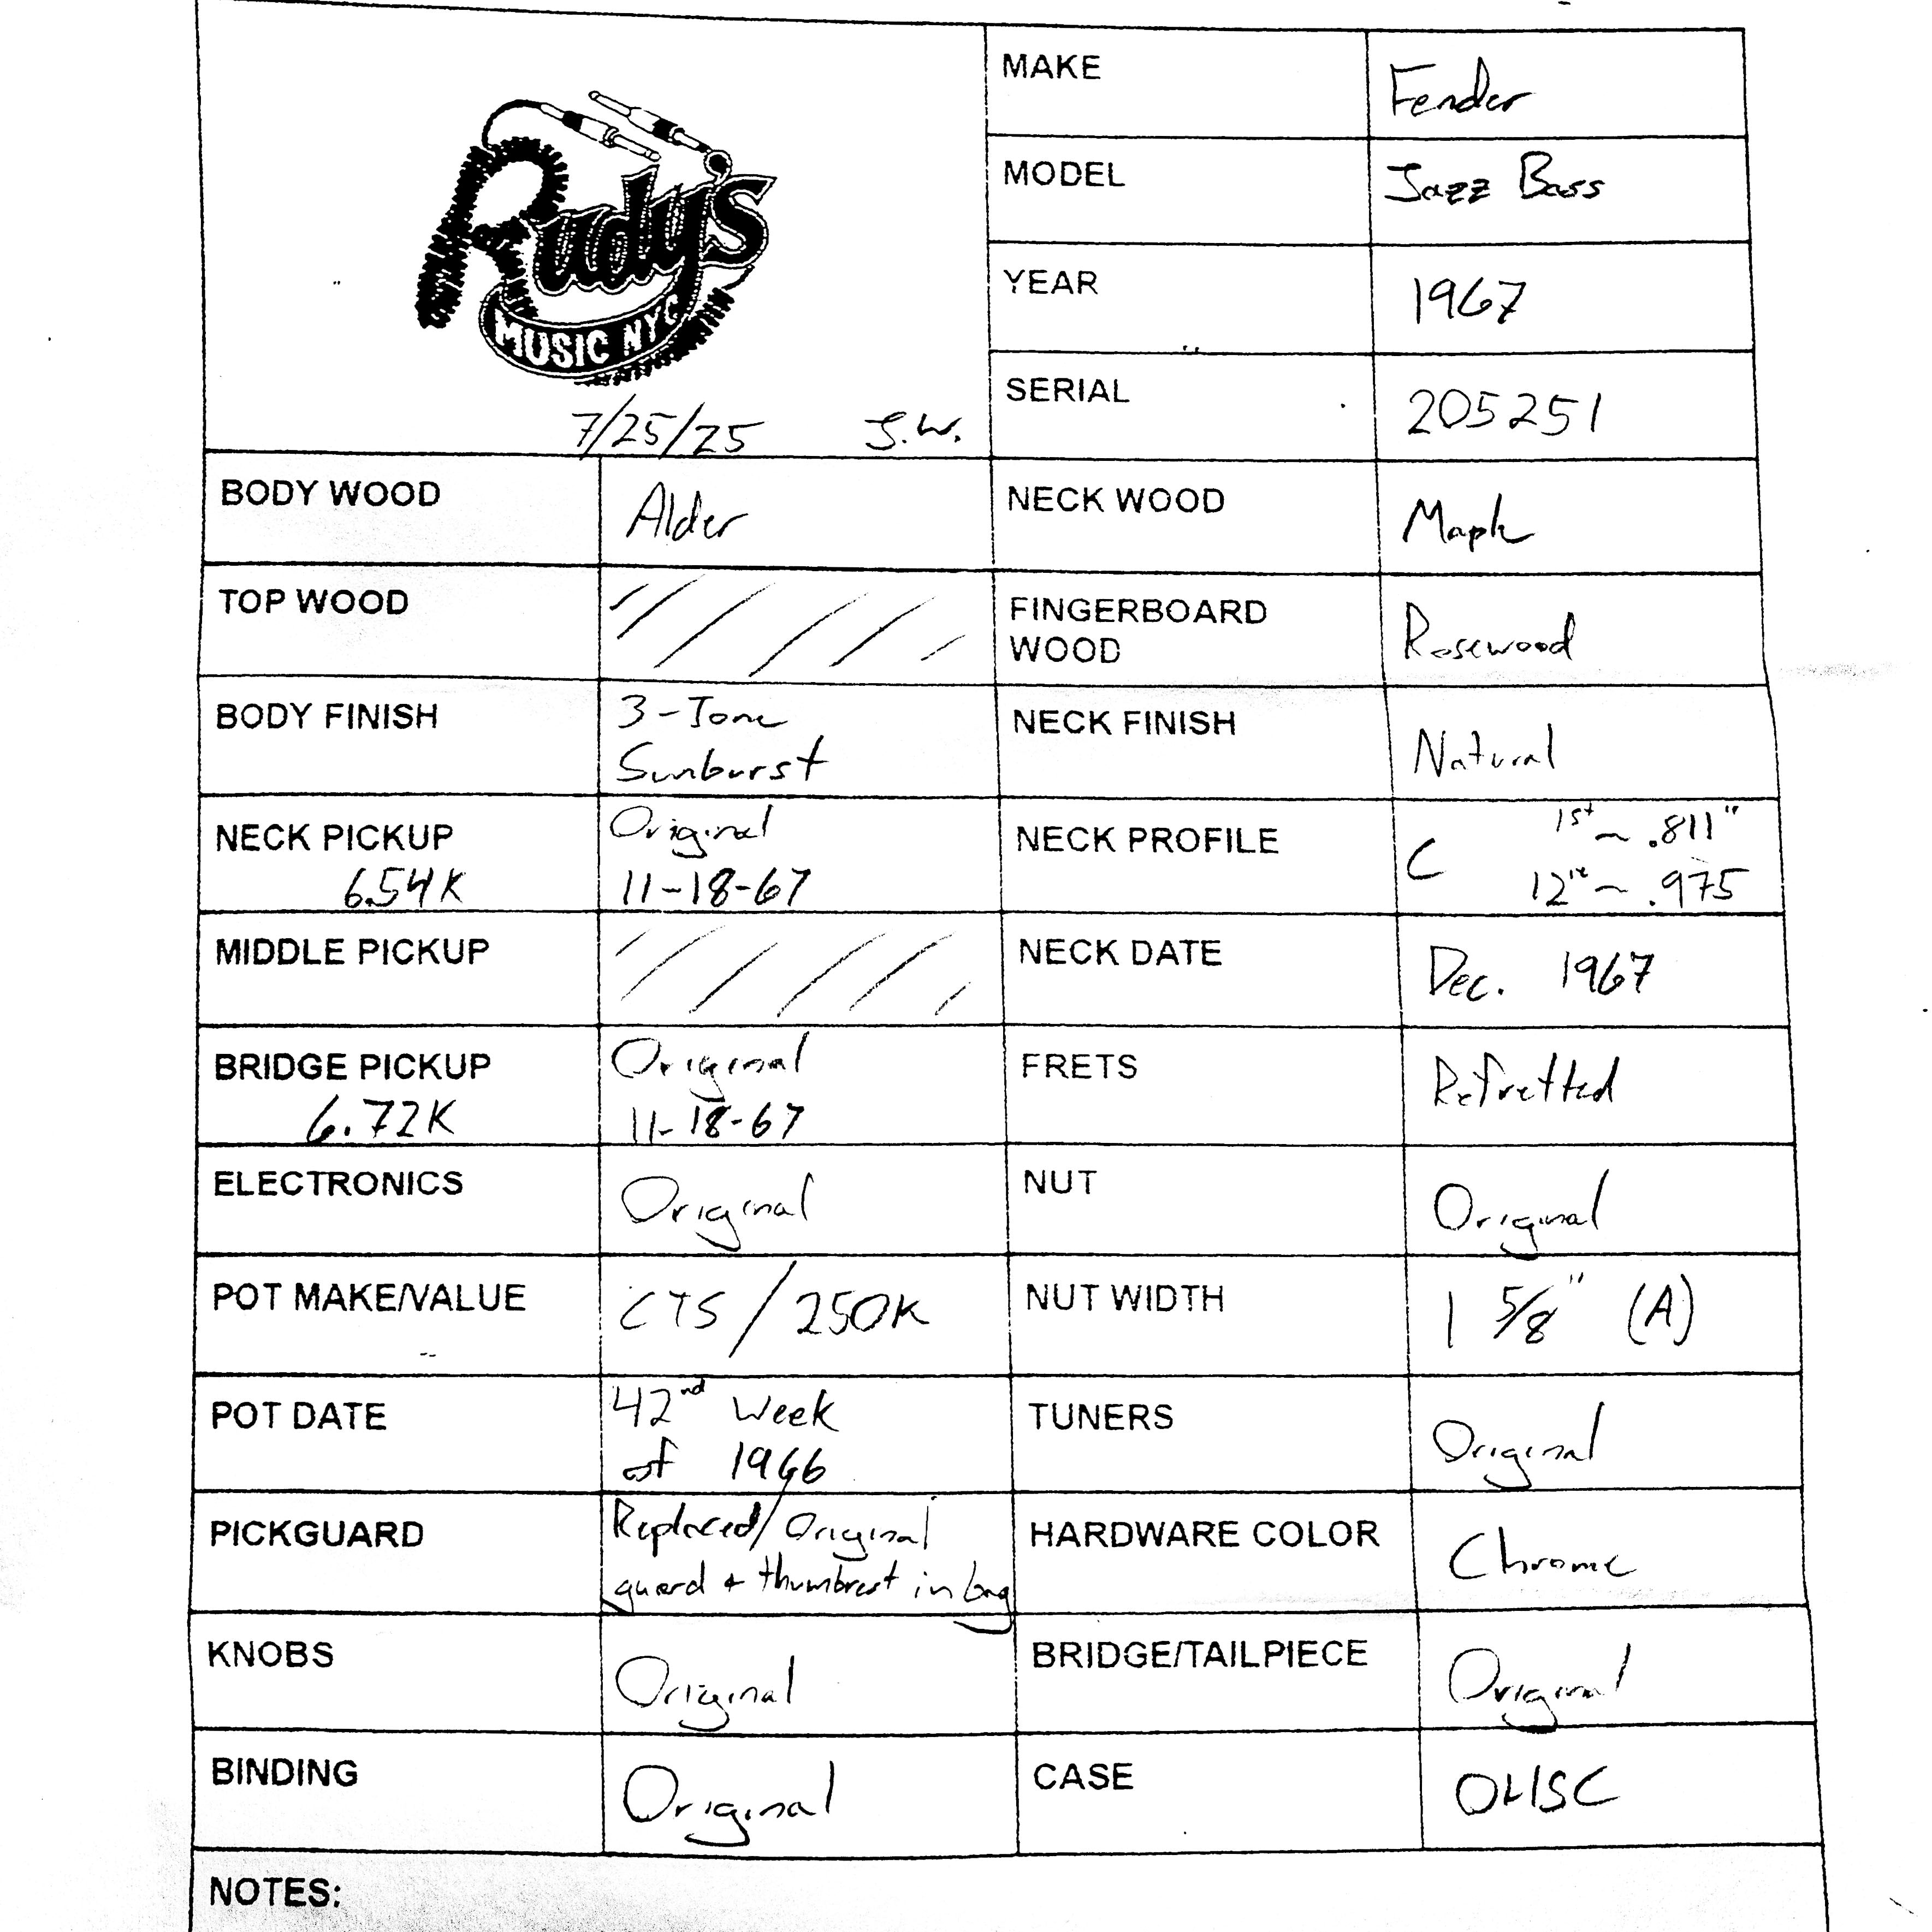 Rudy's
MUSIC NYC
7/25/25 J.W.
MAKE Fender
MODEL Jazz Bass
YEAR 1967
SERIAL 205251
BODY WOOD Alder
NECK WOOD Maple
TOP WOOD
FINGERBOARD
WOOD
Rosewood
BODY FINISH
3-Tone
Sunburst
NECK FINISH Natural
NECK PICKUP
6.54K
Original
11-18-67
NECK PROFILE
C
1st ~ .811"
12th ~ .975
MIDDLE PICKUP
NECK DATE Dec. 1967
BRIDGE PICKUP
6.72K
Original
11-18-67
FRETS Refretted
ELECTRONICS Original
NUT Original
POT MAKE/VALUE CTS / 250K
NUT WIDTH 1 5/8" (A)
POT DATE
42nd Week
of 1966
TUNERS Original
PICKGUARD
Replaced/Original
guard + thumbrest in bag
HARDWARE COLOR Chrome
KNOBS Original
BRIDGE/TAILPIECE Original
BINDING Original
CASE OHSC
NOTES: